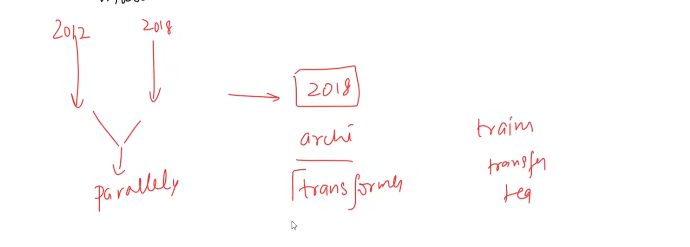 2012 2018
parallely
2018
archi
transformer
train
transfer